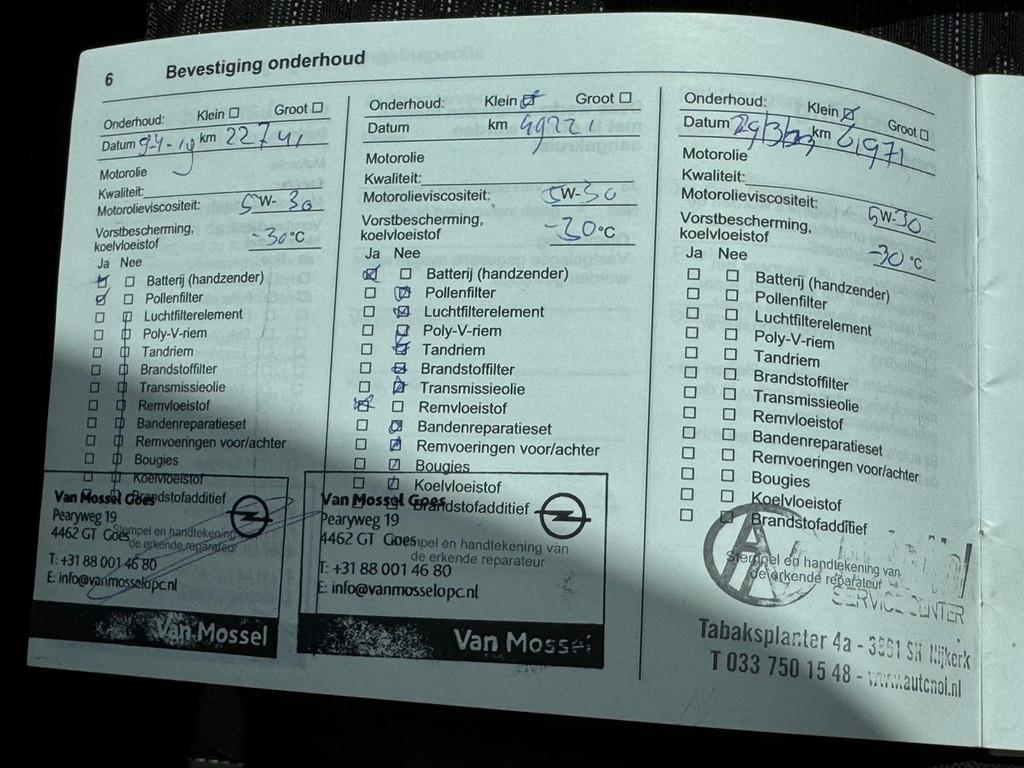 6 Bevestiging onderhoud
Onderhoud: Klein Groot
Datum 9-4-19 km 22741
Motorolie
Kwaliteit:
Motorolieviscositeit: 5W-30
Vorstbescherming,
koelvloeistof -30°C
Ja Nee
Batterij (handzender)
Pollenfilter
Luchtfilterelement
Poly-V-riem
Tandriem
Brandstoffilter
Transmissieolie
Remvloeistof
Bandenreparatieset
Remvoeringen voor/achter
Bougies
Koelvloeistof
Brandstofadditief
Stempel en handtekening
de erkende reparateur
Van Mossel Goes
Pearyweg 19
4462 GT Goes
T: +31 88 001 46 80
E: info@vanmosselopc.nl
Van Mossel
Onderhoud: Klein Groot
Datum km 49221
Motorolie
Kwaliteit:
Motorolieviscositeit: 5W-30
Vorstbescherming,
koelvloeistof -30°C
Ja Nee
Batterij (handzender)
Pollenfilter
Luchtfilterelement
Poly-V-riem
Tandriem
Brandstoffilter
Transmissieolie
Remvloeistof
Bandenreparatieset
Remvoeringen voor/achter
Bougies
Koelvloeistof
Brandstofadditief
Stempel en handtekening van
de erkende reparateur
Van Mossel Goes
Pearyweg 19
4462 GT Goes
T: +31 88 001 46 80
E: info@vanmosselopc.nl
Van Mossel
Onderhoud: Klein Groot
Datum km 61971
Motorolie
Kwaliteit:
Motorolieviscositeit: 5W-30
Vorstbescherming,
koelvloeistof -30°C
Ja Nee
Batterij (handzender)
Pollenfilter
Luchtfilterelement
Poly-V-riem
Tandriem
Brandstoffilter
Transmissieolie
Remvloeistof
Bandenreparatieset
Remvoeringen voor/achter
Bougies
Koelvloeistof
Brandstofadditief
Stempel en handtekening van
de erkende reparateur
SERVICE CENTER
Tabaksplanter 4a - 3861 SH Nijkerk
T 033 750 15 48 - www.autonol.nl